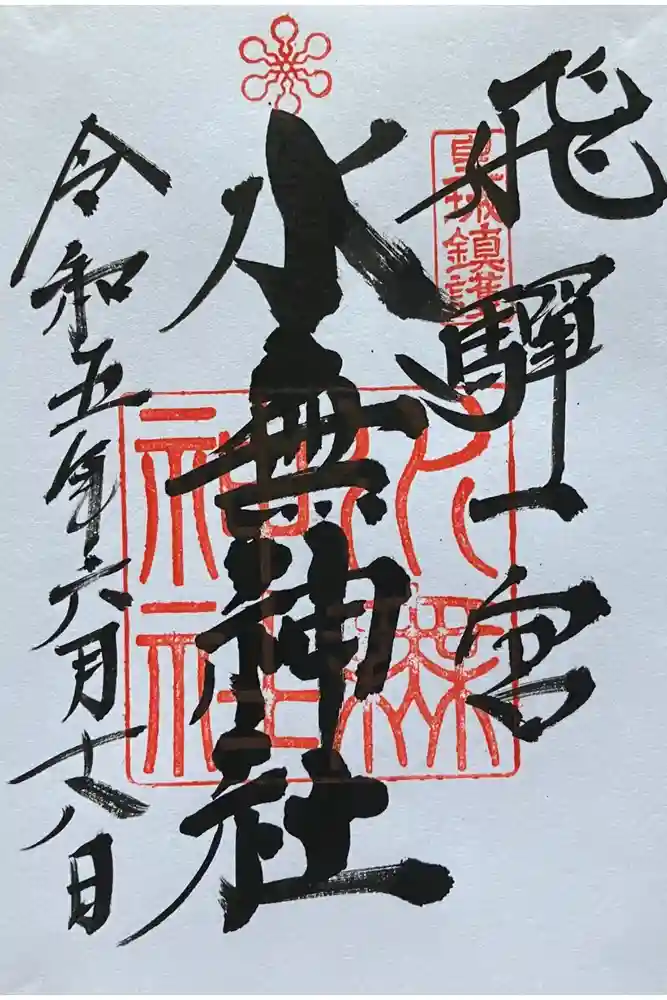 飛驒一宮
皇城鎮護
水無神社
神社
令和五年六月十八日